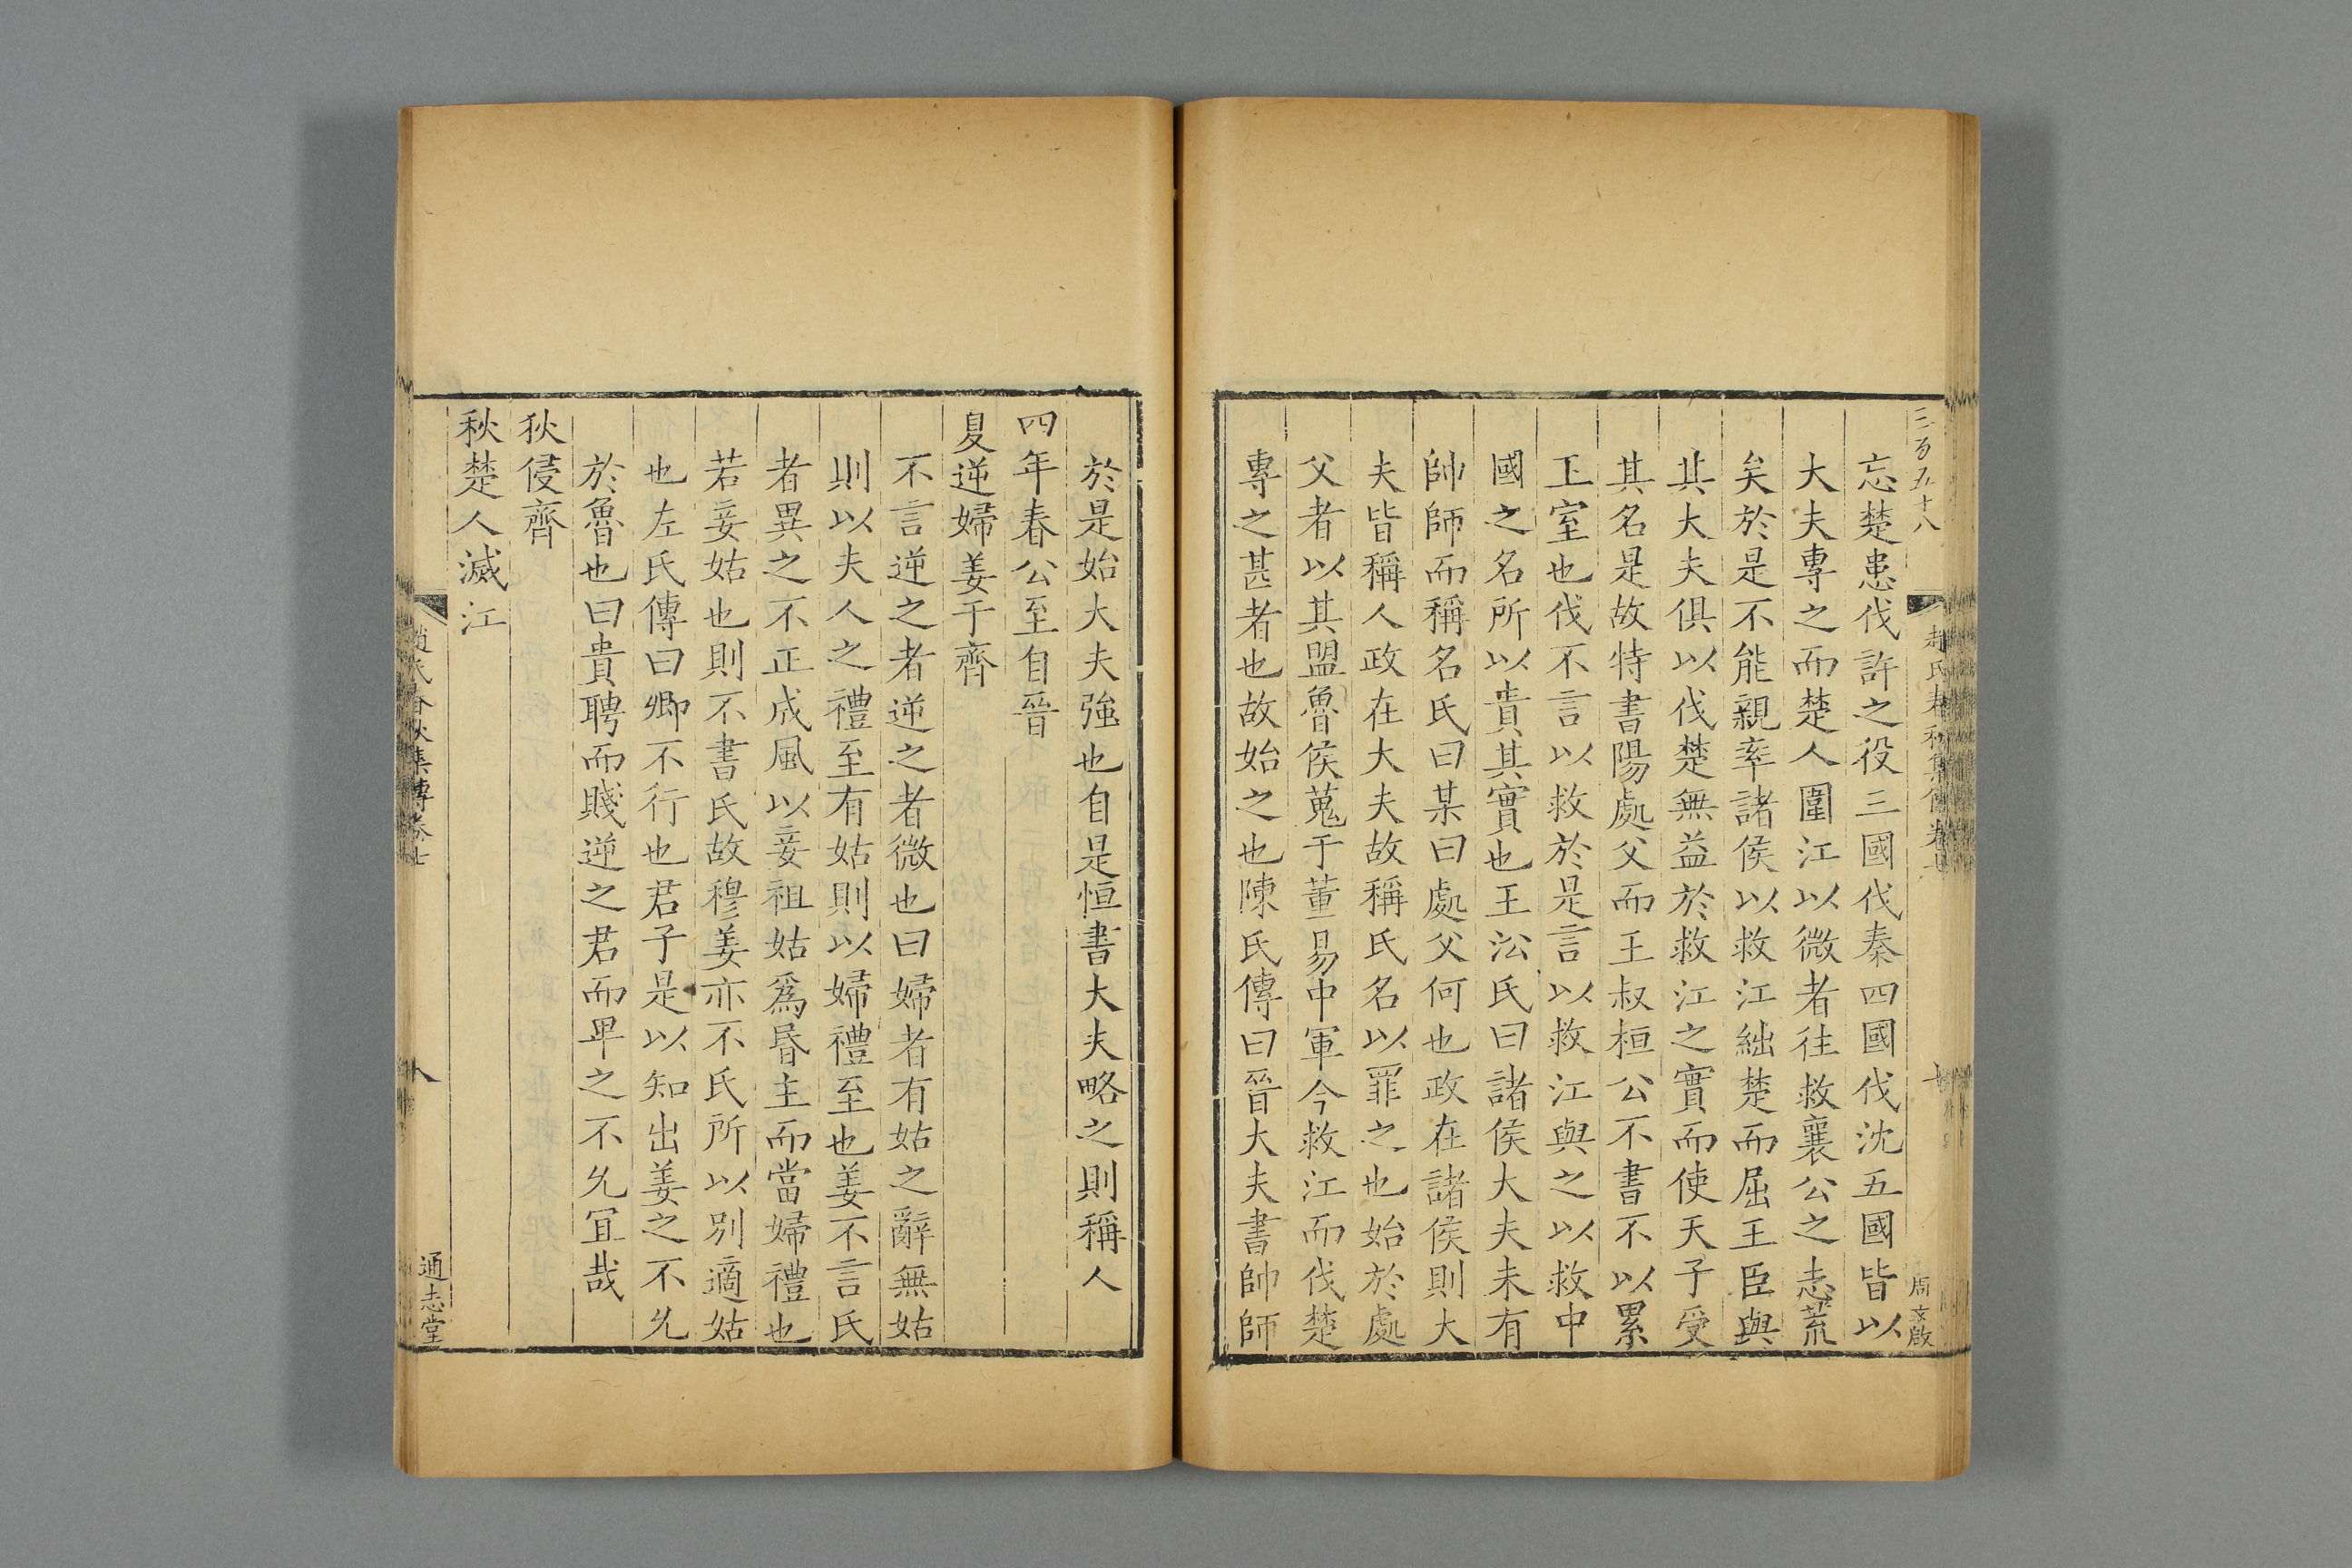 三百五十八
趙氏春秋集傳卷七
七
周文啟
忘楚患伐許之役三國伐秦四國伐沈五國皆以
大夫專之而楚人圍江以微者往救襄公之志荒
矣於是不能親率諸侯以救江絀楚而屈王臣與
其大夫俱以伐楚無益於救江之實而使天子受
其名是故特書陽處父而王叔桓公不書不以累
王室也伐不言以救於是言以救江與之以救中
國之名所以責其實也王㳂氏曰諸侯大夫未有
帥師而稱名氏曰某曰處父何也政在諸侯則大
夫皆稱人政在大夫故稱氏名以罪之也始於處
父者以其盟魯侯蒐于董易中軍今救江而伐楚
專之甚者也故始之也陳氏傳曰晉大夫書帥師
於是始大夫強也自是恒書大夫略之則稱人
四年春公至自晉
夏逆婦姜于齊
不言逆之者逆之者微也曰婦者有姑之辭無姑
則以夫人之禮至有姑則以婦禮至也姜不言氏
者異之不正成風以妾祖姑爲昏主而當婦禮也
若妾姑也則不書氏故穆姜亦不氏所以別適姑
也左氏傳曰卿不行也君子是以知出姜之不允
於魯也曰貴聘而賤逆之君而卑之不允宜哉
狄侵齊
秋楚人滅江
趙氏春秋集傳卷七
八
通志堂